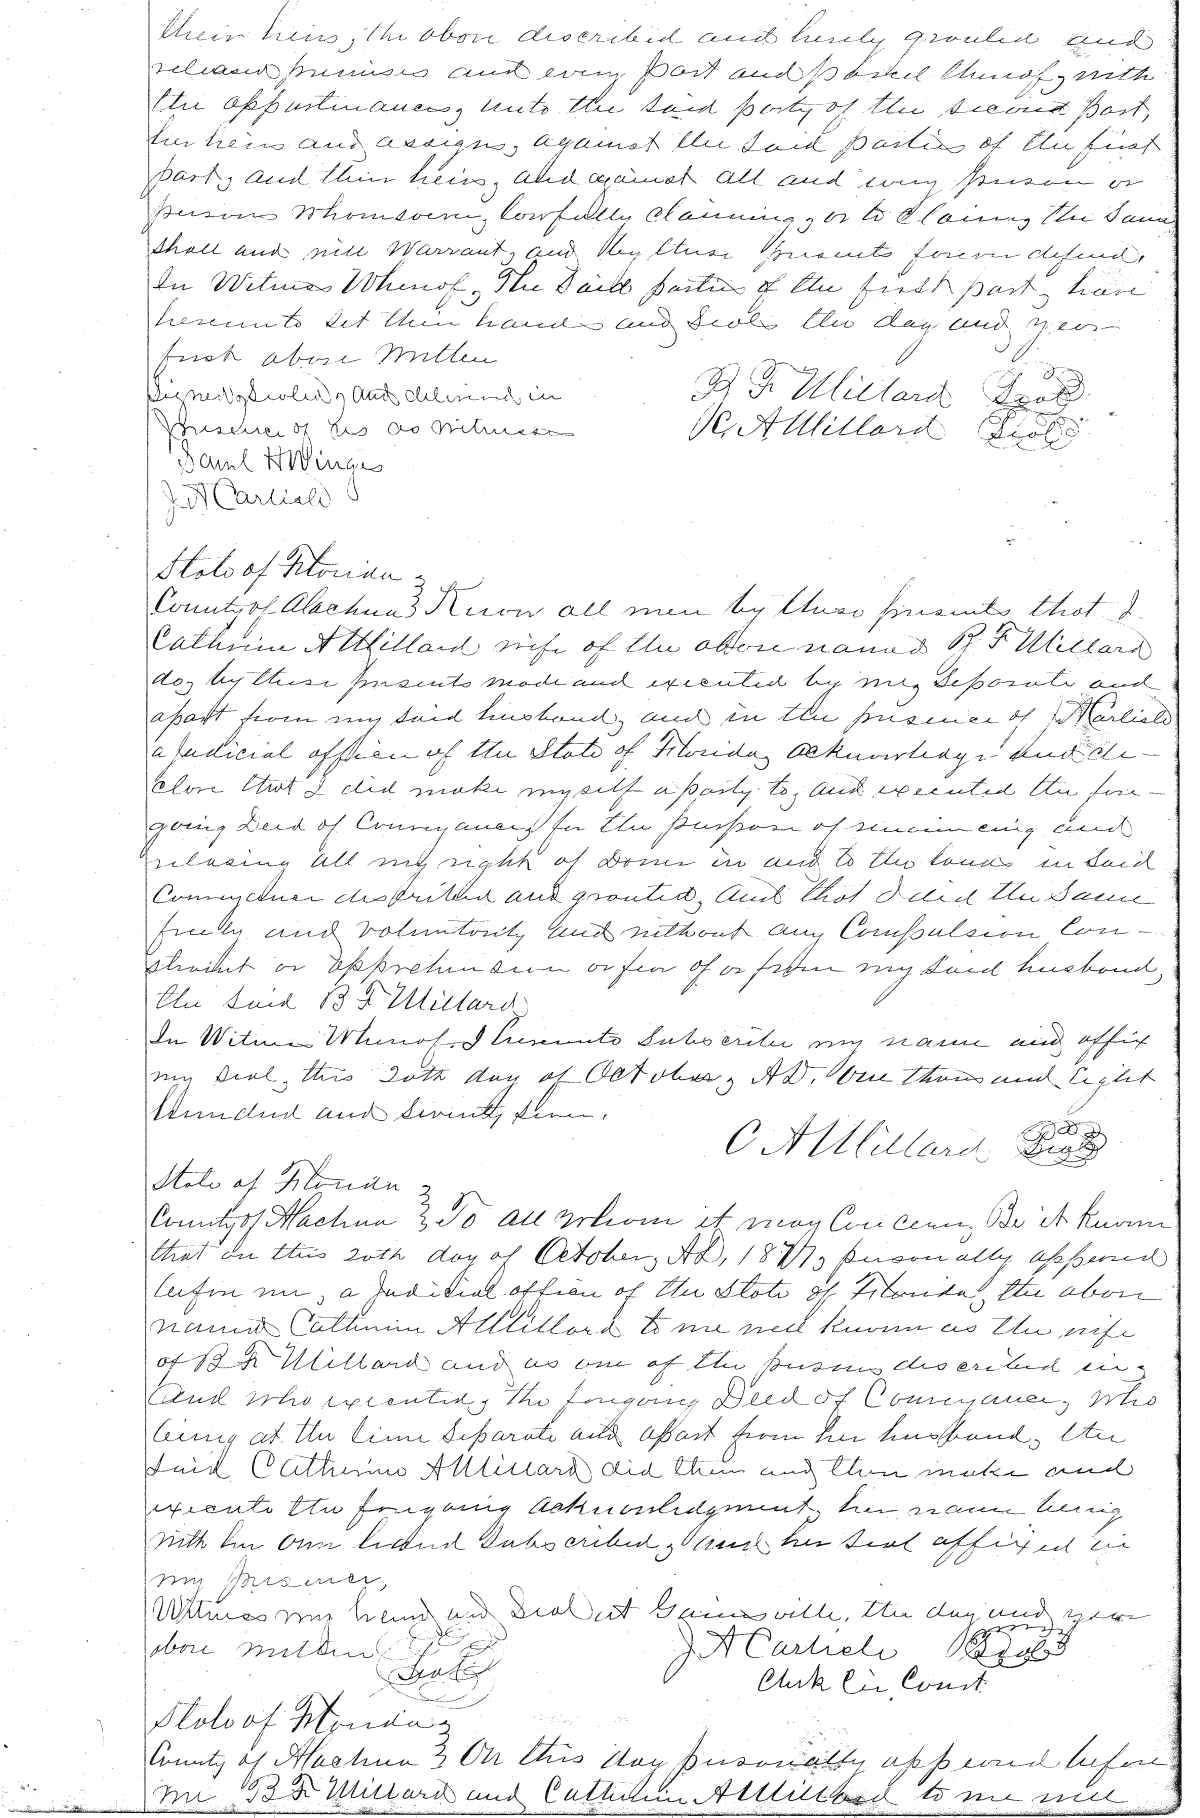 their heirs, the above described and hereby granted and
released premises and every part and parcel thereof, with
the appurtinances, unto the said party of the second part,
her heirs and assigns, against the said parties of the first
part, and their heirs, and against all and every person or
persons whomsoever, lawfully claiming, or to claim, the same
shall and will Warrant, and by these presents forever defend.
In Witness Whereof, The Said parties of the first part, have
hereunto set their hands and seals the day and year
first above Written
Signed, Sealed, and delivered in
presence of us as witnesses
Saml H Winges
J A Carlisle
B F Willard Seal
C. A Willard Seal
State of Florida
County of Alachua } Know all men by these presents that I
Catherine A Willard wife of the above named B F Willard
do, by these presents made and executed by me, separate and
apart from my said husband, and in the presence of J A Carlisle
a Judicial officer of the State of Florida, acknowledge and de-
clare that I did make myself a party to, and executed the fore-
going Deed of Conveyance, for the purpose of renouncing and
releasing all my right of Dower in and to the lands in said
Conveyance described and granted, And that I did the same
freely and voluntarily and without any Compulsion Con-
straint or apprehension or fear of or from my said husband,
the said B F Willard
In Witness Whereof, I hereunto subscribe my name and affix
my seal, this 20th day of October, AD. One thousand Eight
hundred and seventy seven.
C A Willard Seal
State of Florida
County of Alachua } To all whom it may Concern, Be it known
that on this 20th day of October, AD, 1877, personally appeared
before me, a Judicial officer of the State of Florida, the above
named Catherine A Willard to me well known as the wife
of B F Willard and as one of the persons described in,
and who executed, the foregoing Deed of Conveyance, who
being at the time separate and apart from her husband, the
said Catherine A Willard did then and there make and
execute the foregoing acknowledgment, her name being
with her own hand subscribed, and her seal affixed in
my presence,
Witness my hand and Seal at Gainesville, the day and year
above written
Seal
J A Carlisle Seal
Clerk Cir. Court
State of Florida
County of Alachua } On this day personally appeared before
me B F Willard and Catherine A Willard to me well